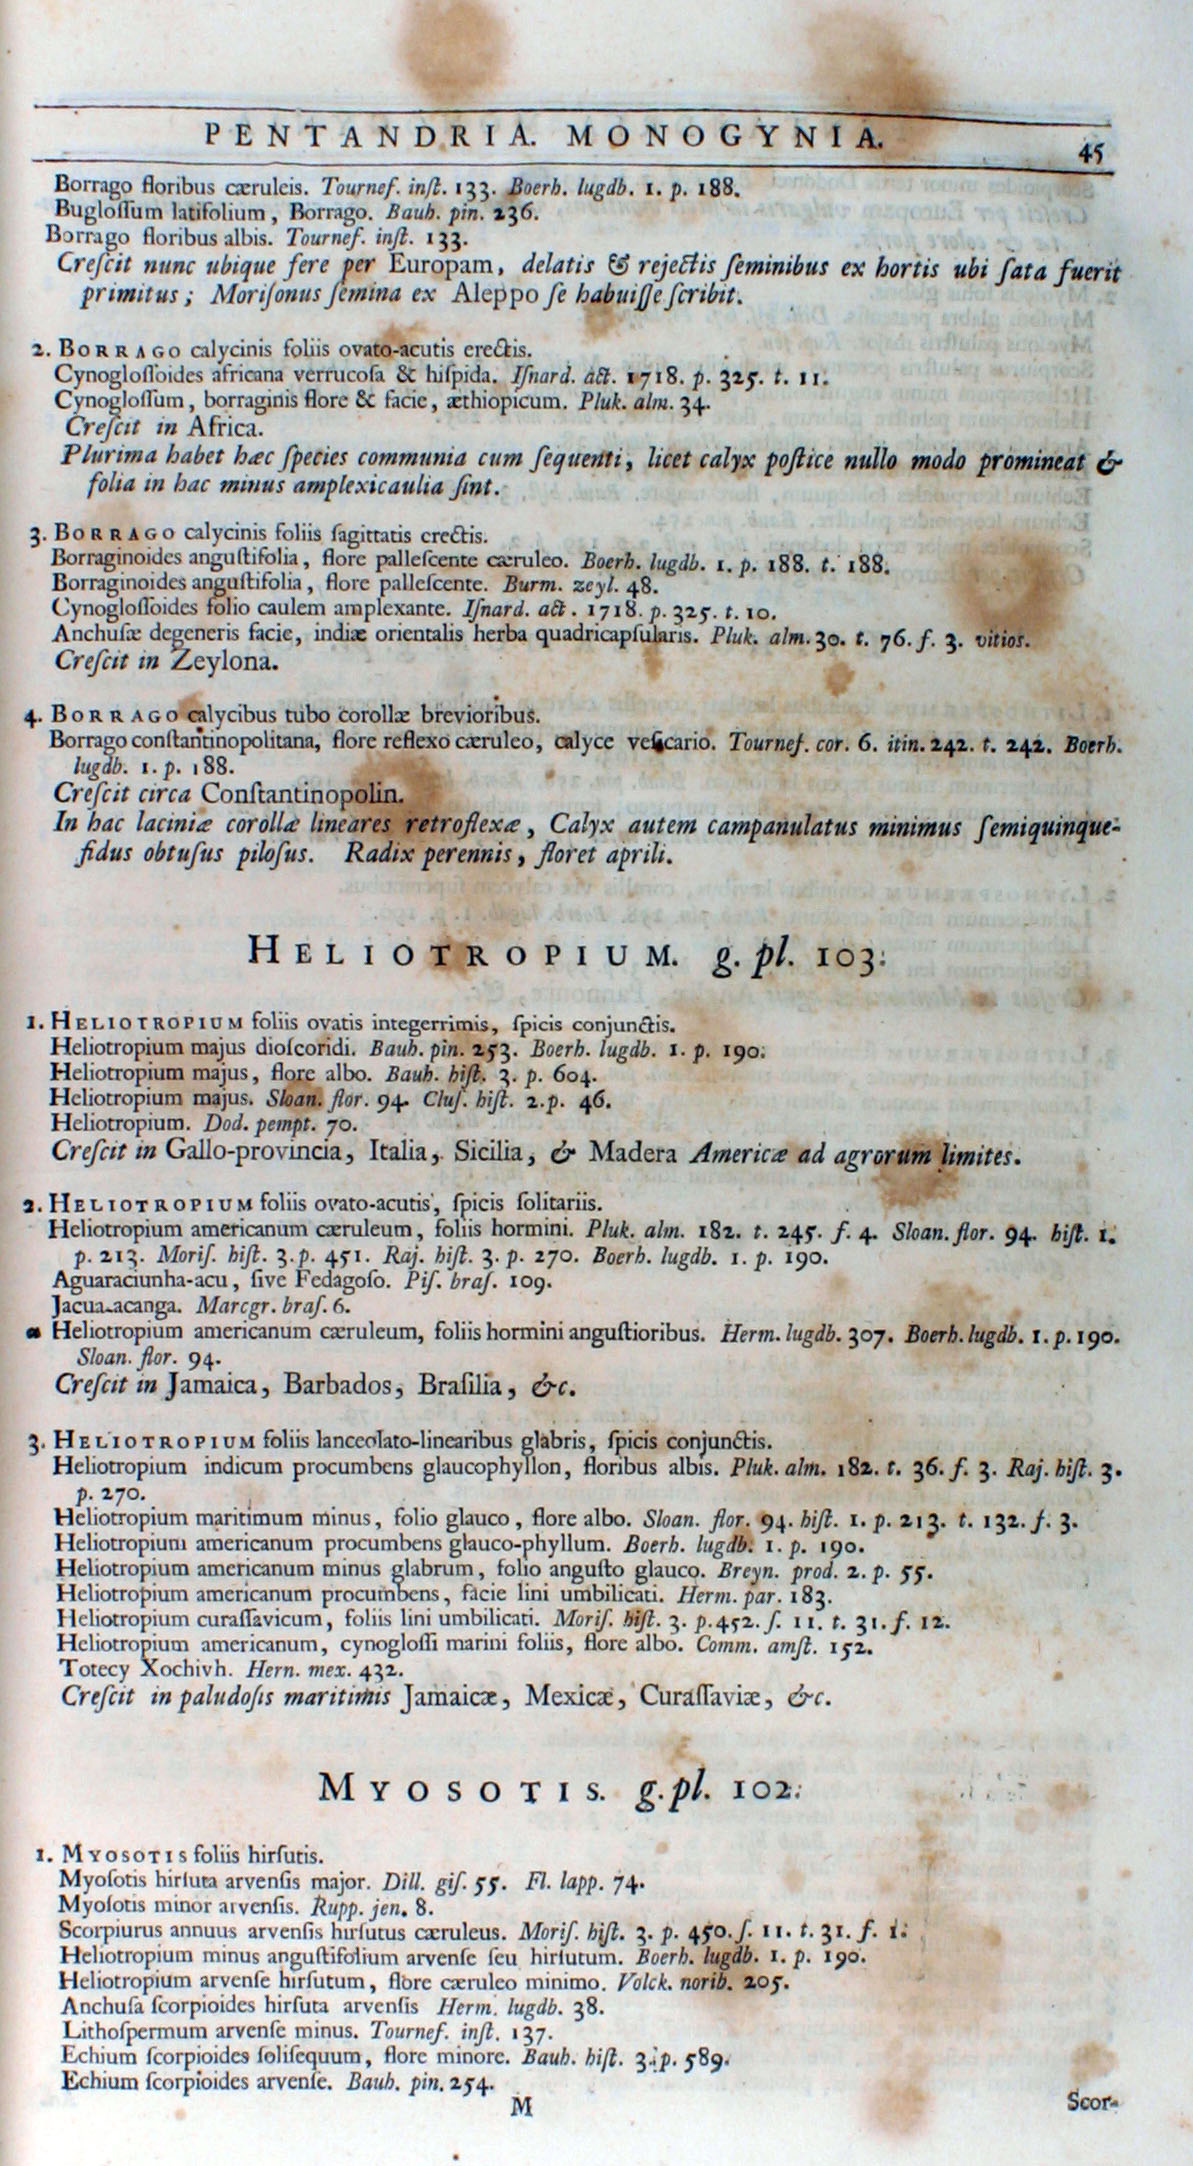 PENTANDRIA. MONOGYNIA. 45
Borrago floribus cæruleis. Tournef. inſt. 133. Boerh. lugdb. 1. p. 188.
Bugloſſum latifolium, Borrago. Bauh. pin. 236.
Borrago floribus albis. Tournef. inſt. 133.
Creſcit nunc ubique fere per Europam, delatis & rejectis ſeminibus ex hortis ubi ſata fuerit
primitus; Moriſonus ſemina ex Aleppo ſe habuiſſe ſcribit.
2. BORRAGO calycinis foliis ovato-acutis erectis.
Cynogloſſoides africana verrucoſa & hiſpida. Iſnard. act. 1718. p. 325. t. 11.
Cynogloſſum, borraginis flore & facie, æthiopicum. Pluk. alm. 34.
Creſcit in Africa.
Plurima habet hæc ſpecies communia cum ſequenti, licet calyx poſtice nullo modo promineat &
folia in hac minus amplexicaulia ſint.
3. BORRAGO calycinis foliis ſagittatis erectis.
Borraginoides anguſtifolia, flore palleſcente cæruleo. Boerh. lugdb. 1. p. 188. t. 188.
Borraginoides anguſtifolia, flore palleſcente. Burm. zeyl. 48.
Cynogloſſoides folio caulem amplexante. Iſnard. act. 1718. p. 325. t. 10.
Anchuſæ degeneris facie, indiæ orientalis herba quadricapſularis. Pluk. alm. 30. t. 76. f. 3. vitios.
Creſcit in Zeylona.
4. BORRAGO calycibus tubo corollæ brevioribus.
Borrago conſtantinopolitana, flore reflexo cæruleo, calyce veſicario. Tournef. cor. 6. itin. 242. t. 242. Boerh.
lugdb. 1. p. 188.
Creſcit circa Conſtantinopolin.
In hac laciniæ corollæ lineares retroflexæ, Calyx autem campanulatus minimus ſemiquinque-
fidus obtuſus piloſus. Radix perennis, floret aprili.
HELIOTROPIUM. g. pl. 103.
1. HELIOTROPIUM foliis ovatis integerrimis, ſpicis conjunctis.
Heliotropium majus dioſcoridi. Bauh. pin. 253. Boerh. lugdb. 1. p. 190.
Heliotropium majus, flore albo. Bauh. hiſt. 3. p. 604.
Heliotropium majus. Sloan. flor. 94. Cluſ. hiſt. 2. p. 46.
Heliotropium. Dod. pempt. 70.
Creſcit in Gallo-provincia, Italia, Sicilia, & Madera Americæ ad agrorum limites.
2. HELIOTROPIUM foliis ovato-acutis, ſpicis ſolitariis.
Heliotropium americanum cæruleum, foliis hormini. Pluk. alm. 182. t. 245. f. 4. Sloan. flor. 94. hiſt. 1.
p. 213. Moriſ. hiſt. 3. p. 451. Raj. hiſt. 3. p. 270. Boerh. lugdb. 1. p. 190.
Aguaraciunha-acu, ſive Fedagoſo. Piſ. braſ. 109.
Jacua-acanga. Marcgr. braſ. 6.
α Heliotropium americanum cæruleum, foliis hormini anguſtioribus. Herm. lugdb. 307. Boerh. lugdb. 1. p. 190.
Sloan. flor. 94.
Creſcit in Jamaica, Barbados, Braſilia, &c.
3. HELIOTROPIUM foliis lanceolato-linearibus glabris, ſpicis conjunctis.
Heliotropium indicum procumbens glaucophyllon, floribus albis. Pluk. alm. 182. t. 36. f. 3. Raj. hiſt. 3.
p. 270.
Heliotropium maritimum minus, folio glauco, flore albo. Sloan. flor. 94. hiſt. 1. p. 213. t. 132. f. 3.
Heliotropium americanum procumbens glauco-phyllum. Boerh. lugdb. 1. p. 190.
Heliotropium americanum minus glabrum, folio anguſto glauco. Breyn. prod. 2. p. 55.
Heliotropium americanum procumbens, facie lini umbilicati. Herm. par. 183.
Heliotropium curaſſavicum, foliis lini umbilicati. Moriſ. hiſt. 3. p. 452. ſ. 11. t. 31. f. 12.
Heliotropium americanum, cynogloſſi marini foliis, flore albo. Comm. amſt. 152.
Totecy Xochivh. Hern. mex. 432.
Creſcit in paludoſis maritimis Jamaicæ, Mexicæ, Curaſſaviæ, &c.
MYOSOTIS. g. pl. 102.
1. MYOSOTIS foliis hirſutis.
Myoſotis hirſuta arvenſis major. Dill. giſ. 55. Fl. lapp. 74.
Myoſotis minor arvenſis. Rupp. jen. 8.
Scorpiurus annuus arvenſis hirſutus cæruleus. Moriſ. hiſt. 3. p. 450. ſ. 11. t. 31. f. 1.
Heliotropium minus anguſtifolium arvenſe ſeu hirſutum. Boerh. lugdb. 1. p. 190.
Heliotropium arvenſe hirſutum, flore cæruleo minimo. Volck. norib. 205.
Anchuſa ſcorpioides hirſuta arvenſis Herm. lugdb. 38.
Lithoſpermum arvenſe minus. Tournef. inſt. 137.
Echium ſcorpioides ſoliſequum, flore minore. Bauh. hiſt. 3. p. 589.
Echium ſcorpioides arvenſe. Bauh. pin. 254.
M Scor-